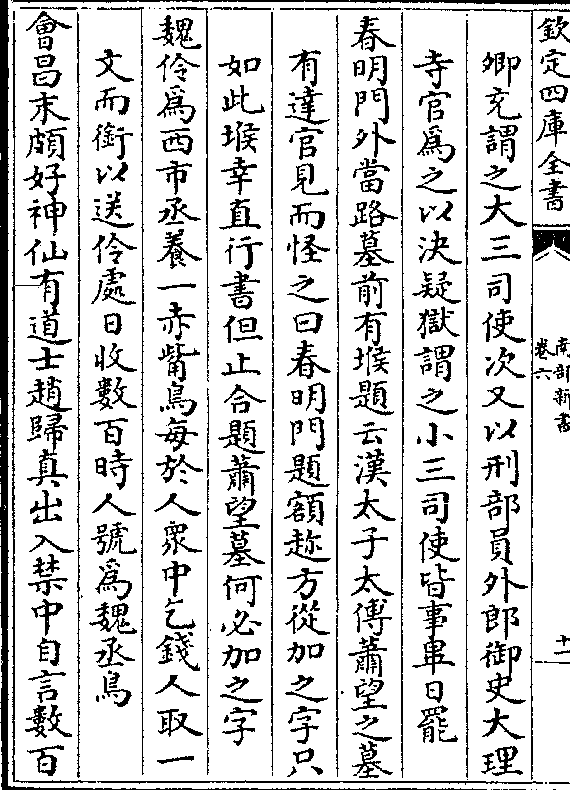 欽定四庫全書
南部新書
卷六
十一
卿充謂之大三司使次又以刑部員外郎御史大理
寺官為之以決疑獄謂之小三司使皆事畢日罷
春明門外當路墓前有堠題云漢太子太傅蕭望之墓
有達官見而怪之曰春明門題額趂方從加之字只
如此堠幸直行書但止合題蕭望墓何必加之字
魏伶為西市丞養一赤觜鳥每於人衆中乞錢人取一
文而銜以送伶處日收數百時人號為魏丞鳥
會昌末頗好神仙有道士趙歸真出入禁中自言數百